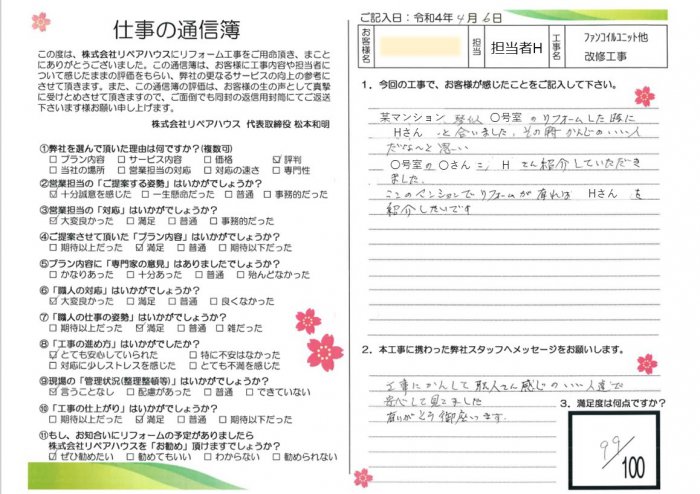 仕事の通信簿
この度は、株式会社リペアハウスにリフォーム工事をご用命頂き、まこと
にありがとうございました。この通信簿は、お客様に工事内容や担当者
について感じたままの評価をもらい、弊社の更なるサービスの向上の参考に
させて頂きます。また、この通信簿の評価は、お客様の生の声として真摯
に受けとめさせて頂きますので、ご面倒でも同封の返信用封筒にてご返送
下さいます様お願い申し上げます。
株式会社リペアハウス 代表取締役 松本和明
①弊社を選んで頂いた理由は何ですか?(複数可)
□プラン内容 □サービス内容 □価格 ☑評判
□当社の場所 □営業担当の対応 □対応の速さ □専門性
②営業担当の「ご提案する姿勢」はいかがでしょうか?
☑十分誠意を感じた □一生懸命だった □普通 □事務的だった
③営業担当の「対応」はいかがでしょうか?
☑大変良かった □満足 □普通 □事務的だった
④ご提案させて頂いた「プラン内容」はいかがでしょうか?
□期待以上だった ☑満足 □普通 □期待以下だった
⑤プラン内容に「専門家の意見」はありましたでしょうか?
□かなりあった □十分あった □普通 □殆んどなかった
⑥「職人の対応」はいかがでしょうか?
☑大変良かった □満足 □普通 □良くなかった
⑦「職人の仕事の姿勢」はいかがでしょうか?
□期待以上だった ☑満足 □普通 □雑だった
⑧「工事の進め方」はいかがでしたか?
☑とても安心していられた □特に不安はなかった
□対応に少しストレスを感じた □とても不満を感じた
⑨現場の「管理状況(整理整頓等)」はいかがでしょうか?
☑言うことなし □配慮があった □普通 □できていない
⑩「工事の仕上がり」はいかがでしょうか?
□期待以上だった ☑満足 □普通 □期待以下だった
⑪もし、お知合いにリフォームの予定がありましたら
株式会社リペアハウスを「お勧め」頂けますでしょうか?
☑ぜひ勧めたい □勧めてもいい □わからない □勧められない
ご記入日:令和4年4月6日
お客様名
担当 担当者H
工事名 ファンコイルユニット他
改修工事
1.今回の工事で、お客様が感じたことをご記入して下さい。
某マンション ○号室のリフォームした時に
Hさんと会いました。その時かんじのいい人
だなーと思い
○号室の○さんに H さん紹介していただき
ました。
このマンションでリフォームが有れば Hさん を
紹介したいです
2.本工事に携わった弊社スタッフへメッセージをお願いします。
工事にかんして職人さん感じのいい人達で
安心して見てました
ありがとう御座います。
3.満足度は何点ですか?
99/100